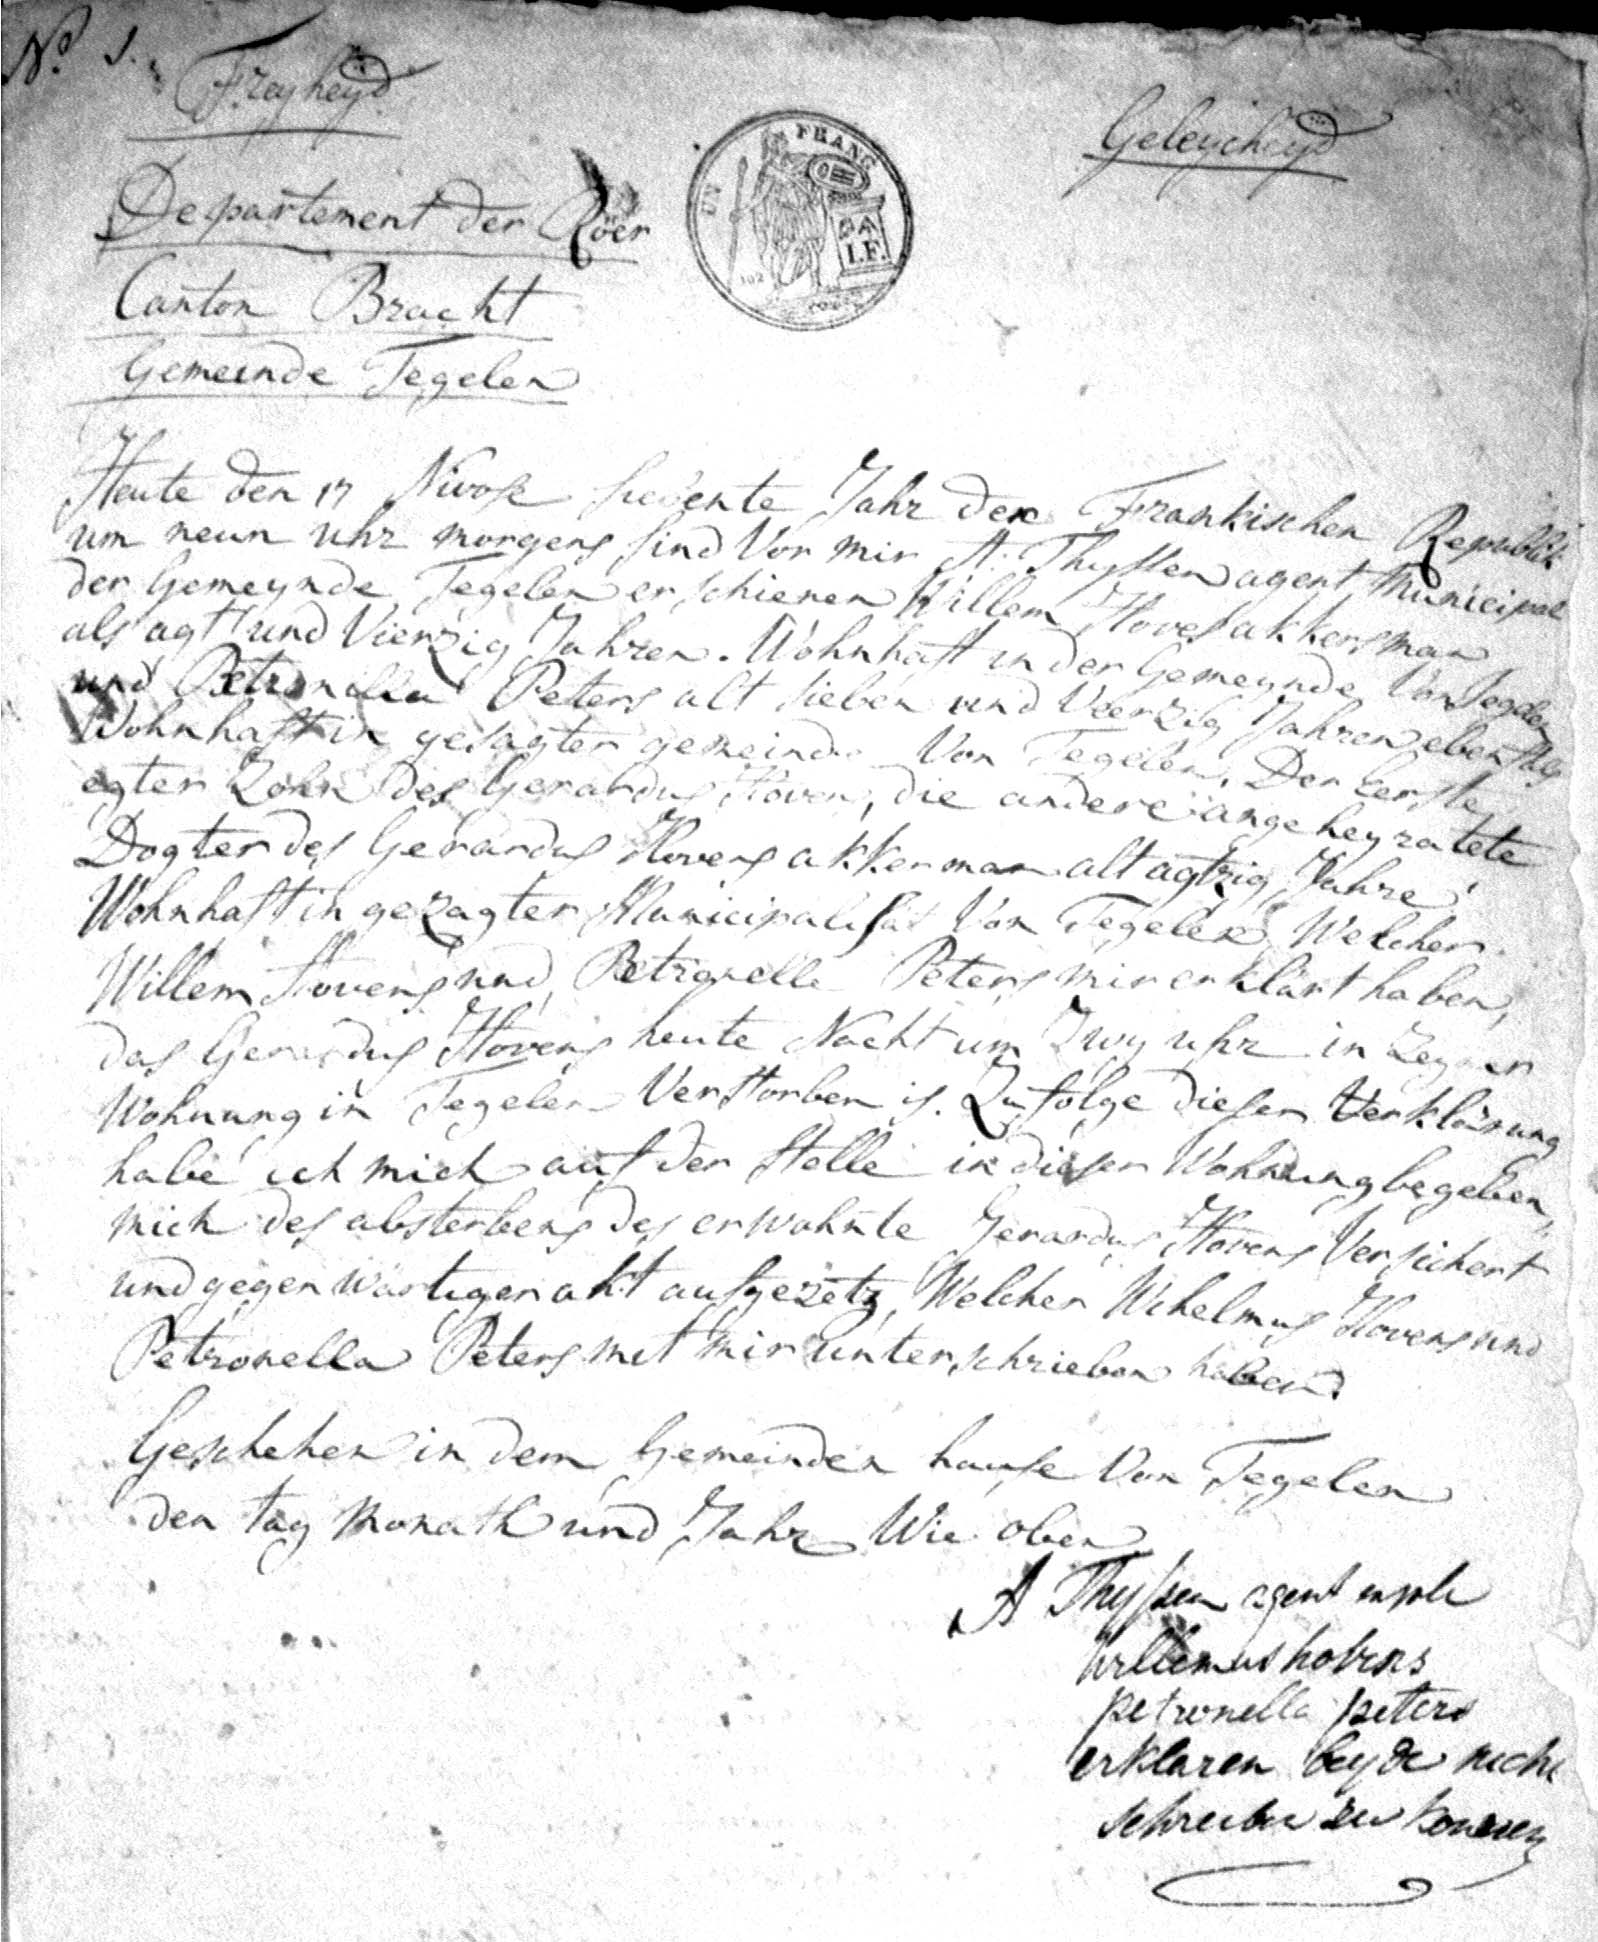 No. 1.
Freyheyd
Geleycheyd
UN FRANC
I.F.
Departement der Röer
Canton Bracht
Gemeinde Tegelen
Heute den 17 Nivose siebente Jahr der Frankischen Republik
um neun uhr morgens sind Vor mir A: Thyssen agent Municipal
der Gemeynde Tegelen erschienen Willem Hovens akkersman
als agt und Vierzig Jahren. Wohnhaft in der Gemeynde Von Tegelen
und Petronella Peters alt sieben und Veerzig Jahren ebenfals
Wohnhaft in gesagter gemeinde Von Tegelen. Der Eerste
egter Zohn des Gerardus Hovens, die andere angeheyratete
Dogter des Gerardus Hovens akkerman alt agtzig Jahre
Wohnhaft in gezagter Municipalität Von Tegelen, Welcher
Willem Hovens und Petronella Peters mir erklärt haben,
das Gerardus Hovens heute Nacht um Zwy uhr in Zeyner
Wohnung in Tegelen Verstorben is. Zufolge dieser Verklärung
habe ich mich auf der stelle in dieser Wohnung begeben,
mich des absterbens des erwohnte Gerardus Hovens Versichert
und gegenwärtigen akt aufgezetz, Welchen Wihelmus Hovens und
Petronella Peters met mir unterschrieben haben.
Geschehen in dem Gemeinden hause Von Tegelen
den tag Monath und Jahr Wie oben
A Thyssen agent mple
Willemus hovens
petronella peters
erklaren beyde nicht
schreiben zu konnen